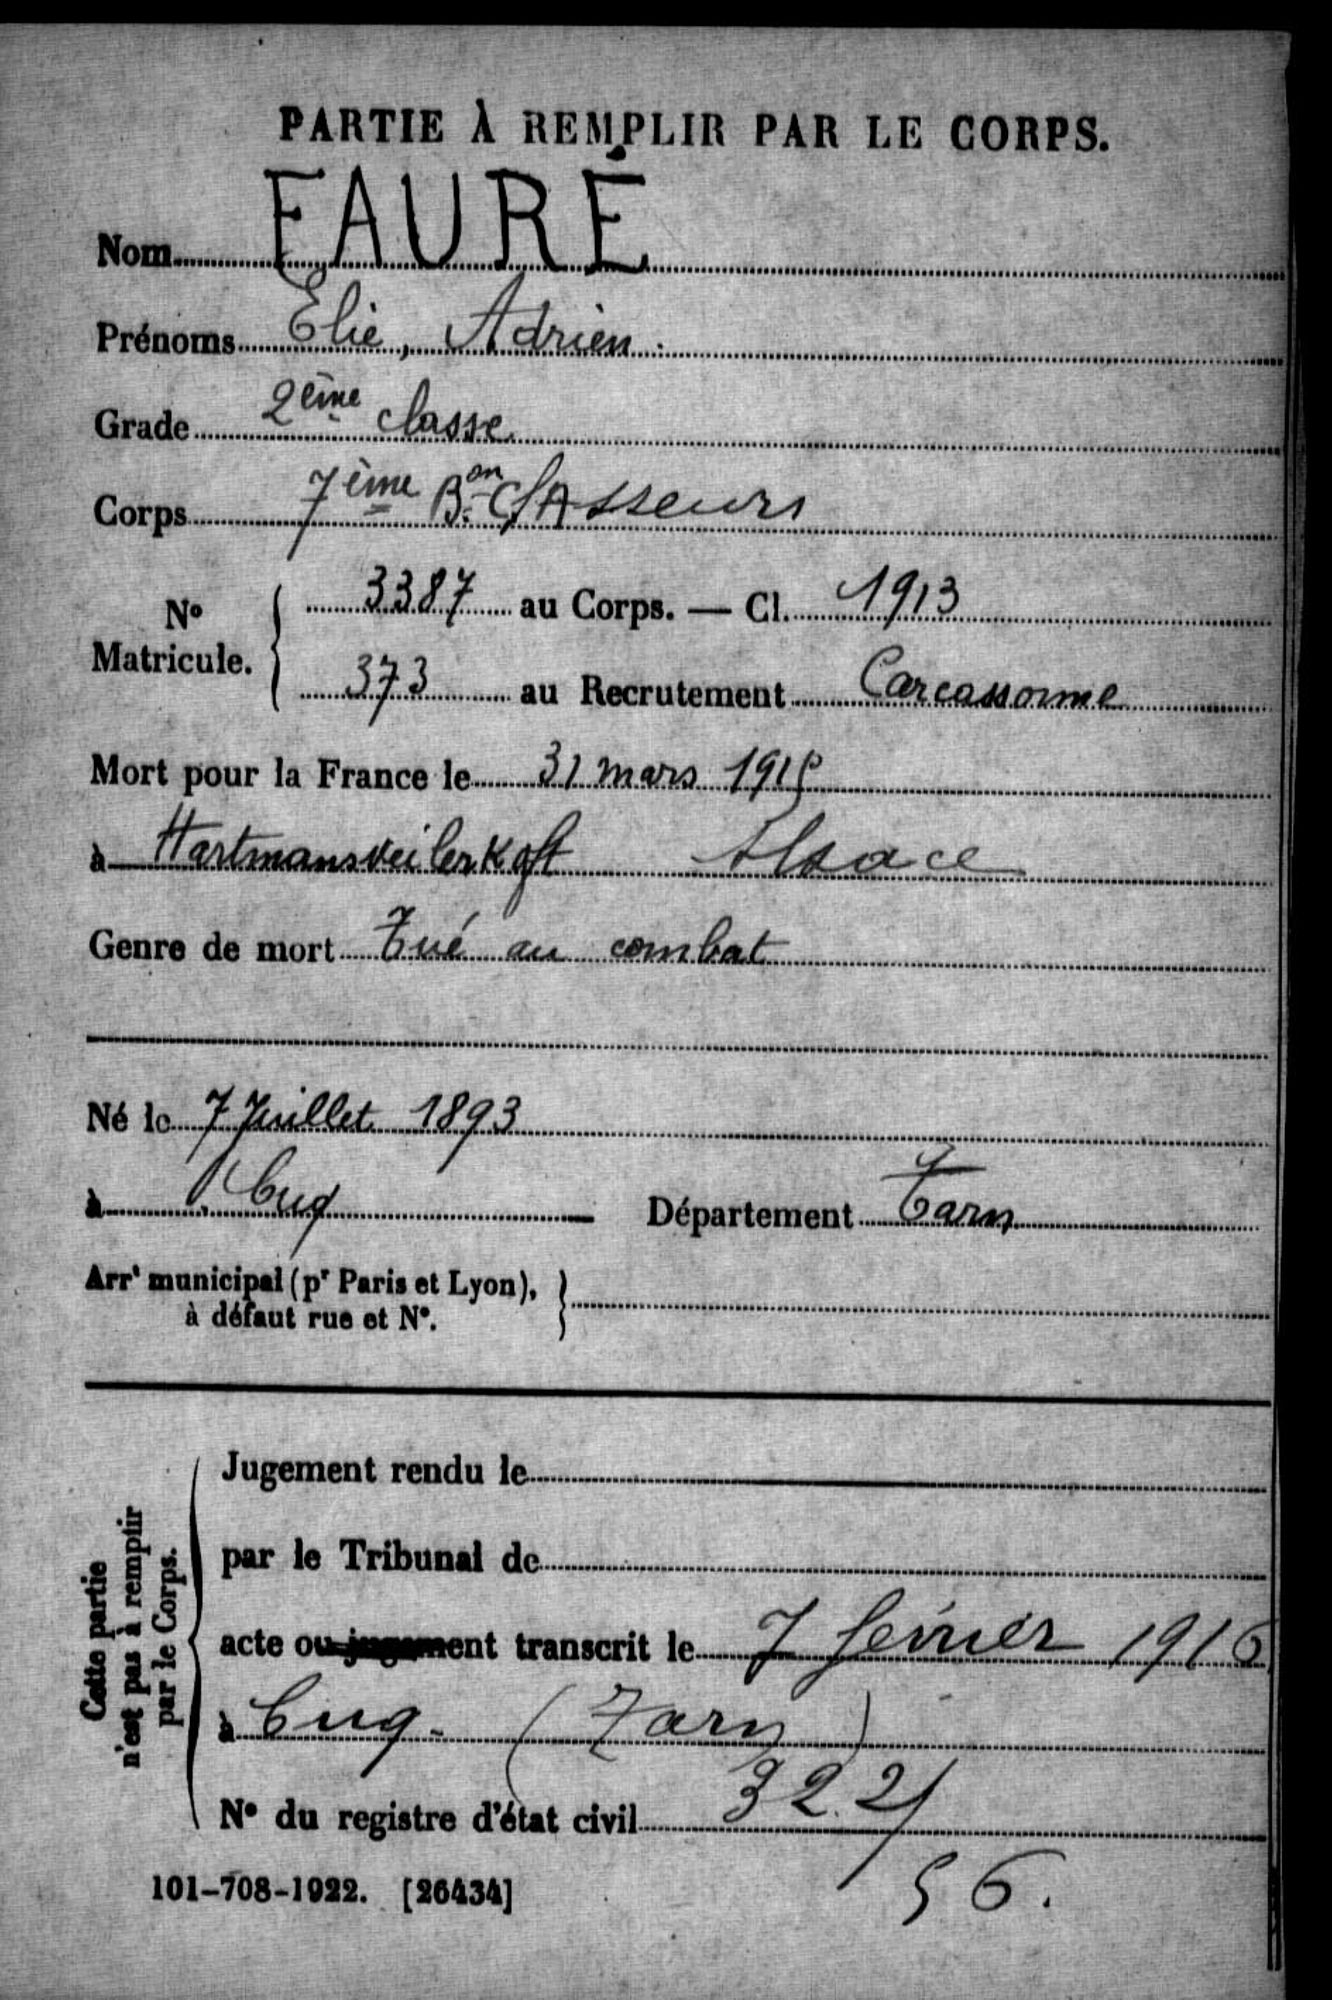 PARTIE À REMPLIR PAR LE CORPS.
Nom FAURÉ
Prénoms Elie, Adrien.
Grade 2ème classe
Corps 7ème Bon Chasseurs
N° Matricule. 3387 au Corps. — Cl. 1913
373 au Recrutement Carcassonne
Mort pour la France le 31 mars 1915
à Hartmansveilerkoft Alsace
Genre de mort Tué au combat
Né le 7 Juillet 1893
à Cuq Département Tarn
Arrt municipal (pr Paris et Lyon),
à défaut rue et N°.
Cette partie
n'est pas à remplir
par le Corps.
Jugement rendu le
par le Tribunal de
acte ou jugement transcrit le 7 février 1916
à Cuq. (Tarn)
N° du registre d'état civil 322/
56.
101-708-1922. [26434]